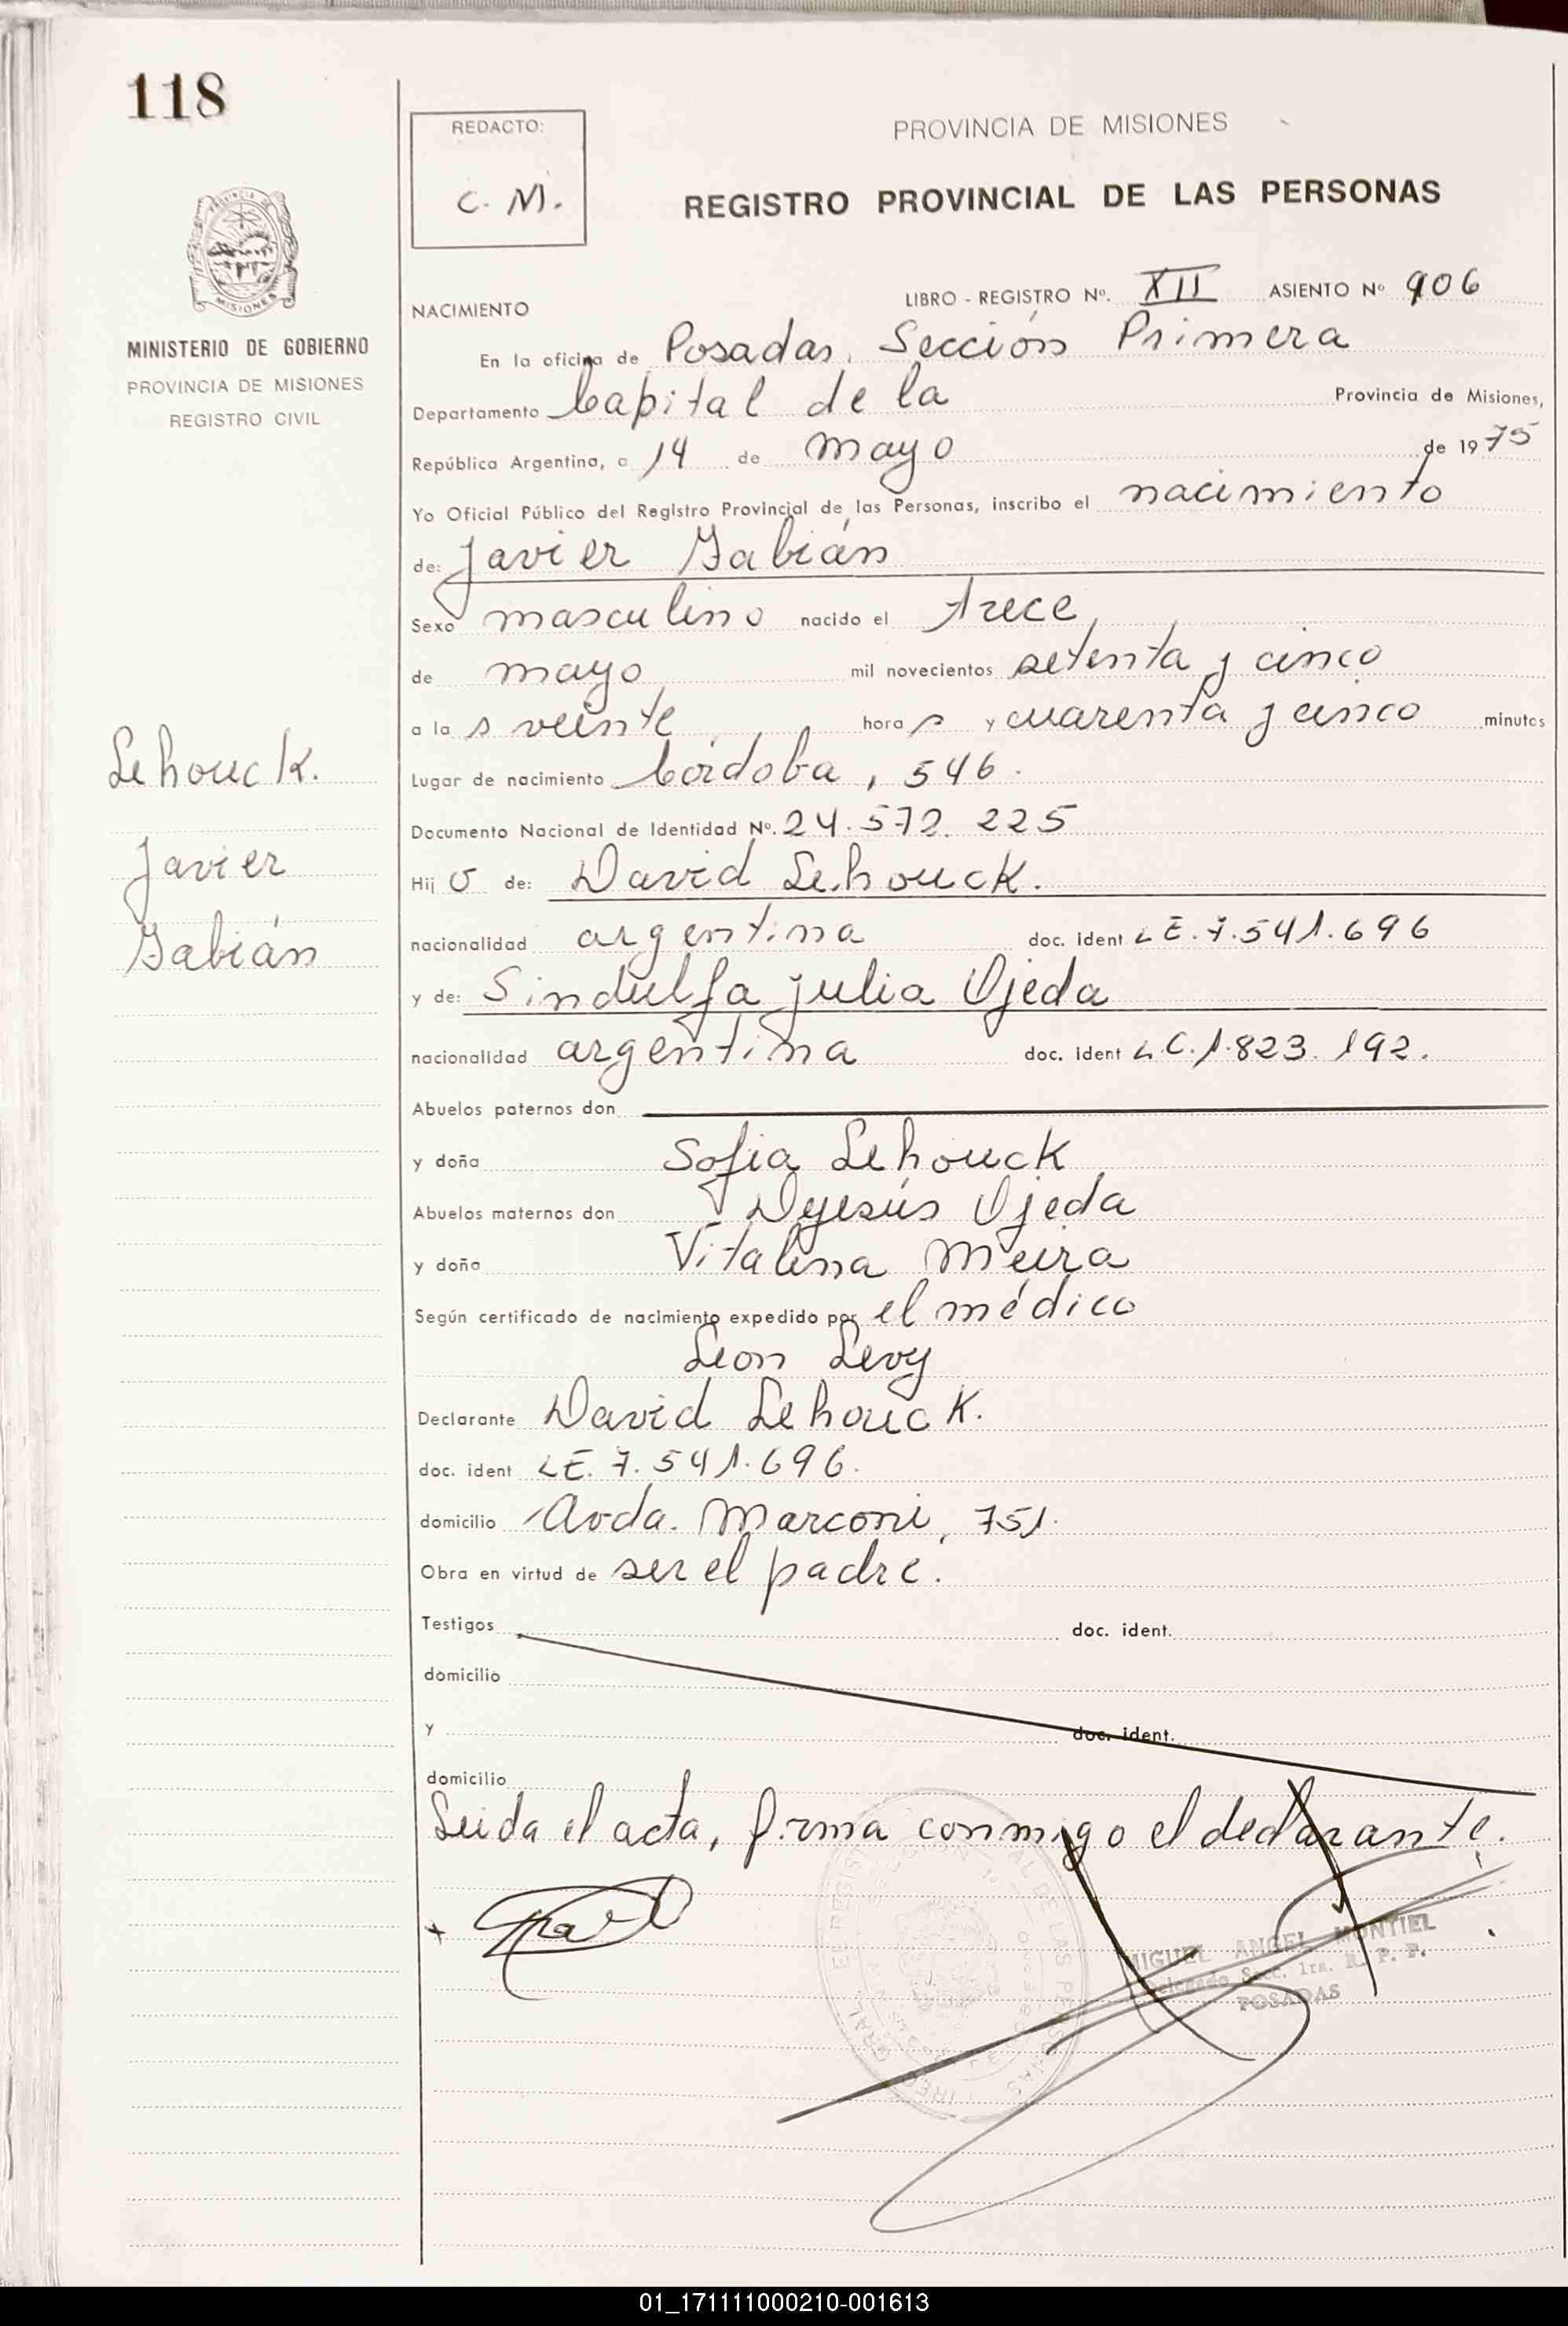 118
REDACTO:
C. M.
PROVINCIA DE MISIONES
REGISTRO PROVINCIAL DE LAS PERSONAS
MISIONES
MINISTERIO DE GOBIERNO
PROVINCIA DE MISIONES
REGISTRO CIVIL
LIBRO - REGISTRO Nº. XII ASIENTO Nº 906
NACIMIENTO
En la oficina de Posadas. Sección Primera
Departamento Capital de la Provincia de Misiones,
República Argentina, a 14 de mayo de 1975
Yo Oficial Público del Registro Provincial de las Personas, inscribo el nacimiento
de: Javier Fabián
Sexo masculino nacido el trece
de mayo mil novecientos setenta y cinco
a la s veinte hora s y cuarenta y cinco minutos
Lehouck.
Lugar de nacimiento Córdoba, 546.
Documento Nacional de Identidad Nº. 24.572.225
Javier
Hij o de: David Lehouck.
Fabián
nacionalidad argentina doc. ident L E. 7.541.696
y de: Sindulfa Julia Ojeda
nacionalidad argentina doc. ident L.C. 1.823.192.
Abuelos paternos don
y doña Sofia Lehouck
Abuelos maternos don Dyesús Ojeda
y doña Vitalina Meira
Según certificado de nacimiento expedido por el médico
Leon Levy
Declarante David Lehouck.
doc. ident LE. 7.541.696.
domicilio Avda. Marconi, 751.
Obra en virtud de ser el padre.
Testigos doc. ident.
domicilio
y doc. ident.
domicilio
Leida el acta, firma conmigo el declarante.
MIGUEL ANGEL MONTIEL
Delegado Secc. 1ra. R. P. P.
POSADAS
01_171111000210-001613